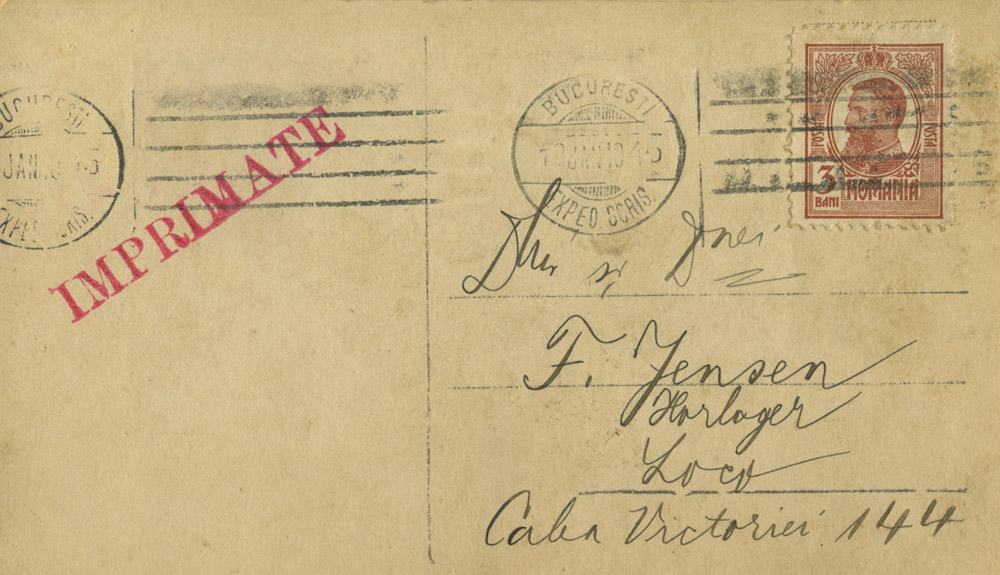 BUCURESTI
JAN.10 4-5
EXPED. CRIS.
IMPRIMATE
BUCURESTI
12 JAN 10 4-5
EXPED. SCRIS.
POSTA
3
BANI
ROMANIA
Dlui și Dnei
F. Jensen
Horloger
Loco
Calea Victoriei 144